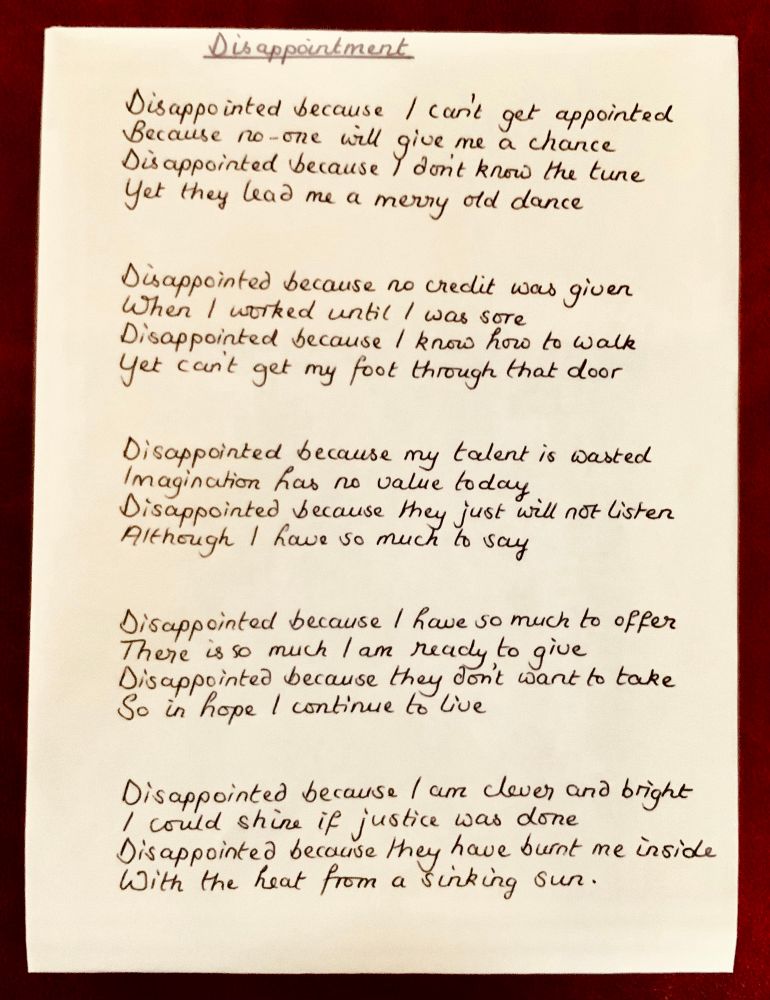 Disappointment
Disappointed because I can't get appointed
Because no-one will give me a chance
Disappointed because I don't know the tune
Yet they lead me a merry old dance
Disappointed because no credit was given
When I worked until I was sore
Disappointed because I know how to walk
Yet can't get my foot through that door
Disappointed because my talent is wasted
Imagination has no value today
Disappointed because they just will not listen
Although I have so much to say
Disappointed because I have so much to offer
There is so much I am ready to give
Disappointed because they don't want to take
So in hope I continue to live
Disappointed because I am clever and bright
I could shine if justice was done
Disappointed because they have burnt me inside
With the heat from a sinking sun.